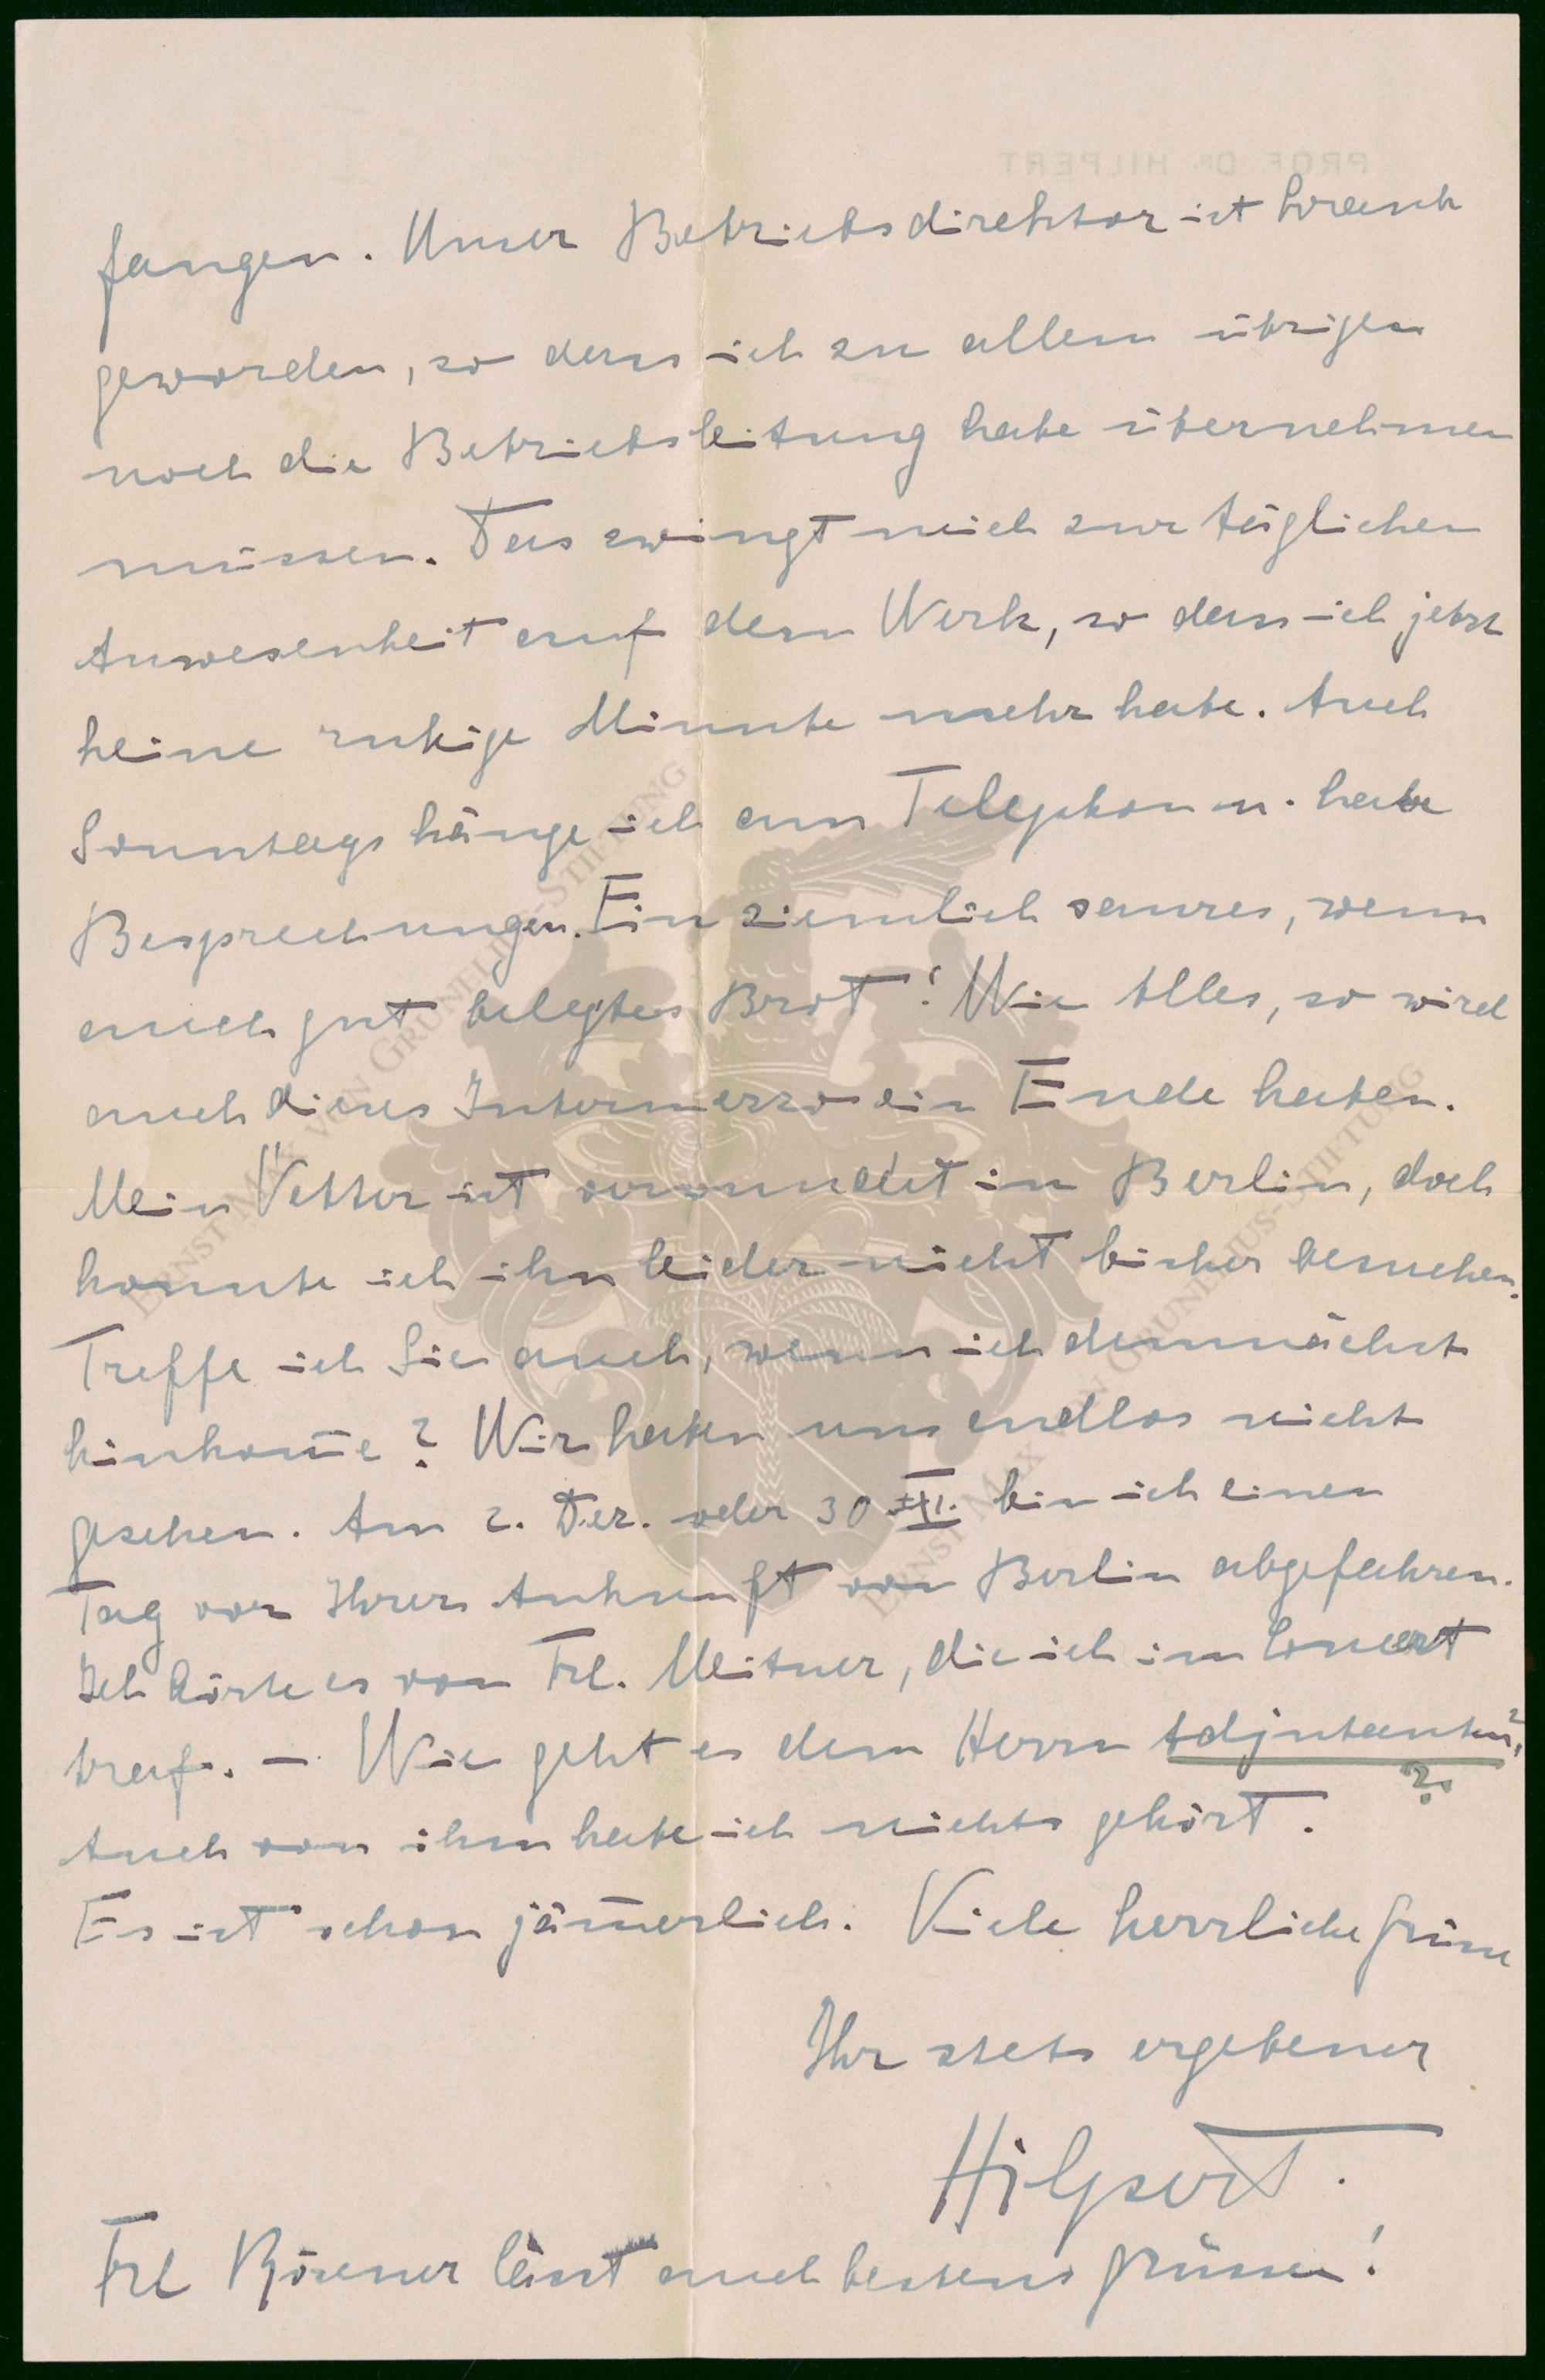 fangen. Unser Betriebsdirektor ist krank
geworden, so dass ich zu allem übrigen
noch die Betriebsleitung habe übernehmen
müssen. Das zwingt mich zur täglichen
Anwesenheit auf dem Werk, so dass ich jetzt
keine ruhige Minute mehr habe. Auch
Sonntags hänge ich am Telephon u. habe
Besprechungen. Ein ziemlich saures, wenn
auch gut belegtes Brot! Wie Alles, so wird
auch dieses Intermezzo ein Ende haben.
Mein Vetter ist verwundet in Berlin, doch
konnte ich ihn leider nicht bisher besuchen.
Treffe ich Sie auch, wenn ich demnächst
hinkom̄e? Wir haben uns endlos nicht
gesehen. Am 2. Dez. oder 30 XI. bin ich einen
Tag vor Ihrer Ankunft von Berlin abgefahren.
Ich hörte es von Frl. Meitner, die ich im Concert
traf. – Wie geht es dem Herrn Adjutanten?
?
Auch von ihm habe ich nichts gehört.
Es ist schon jäm̄erlich. Viele herzliche Grüsse
Ihr stets ergebener
Hilpert.
Frl lässt auch bestens grüssen!
PROF. DR. HILPERT
ERNST MAX VON GRUNELIUS-STIFTUNG
ERNST MAX VON GRUNELIUS-STIFTUNG